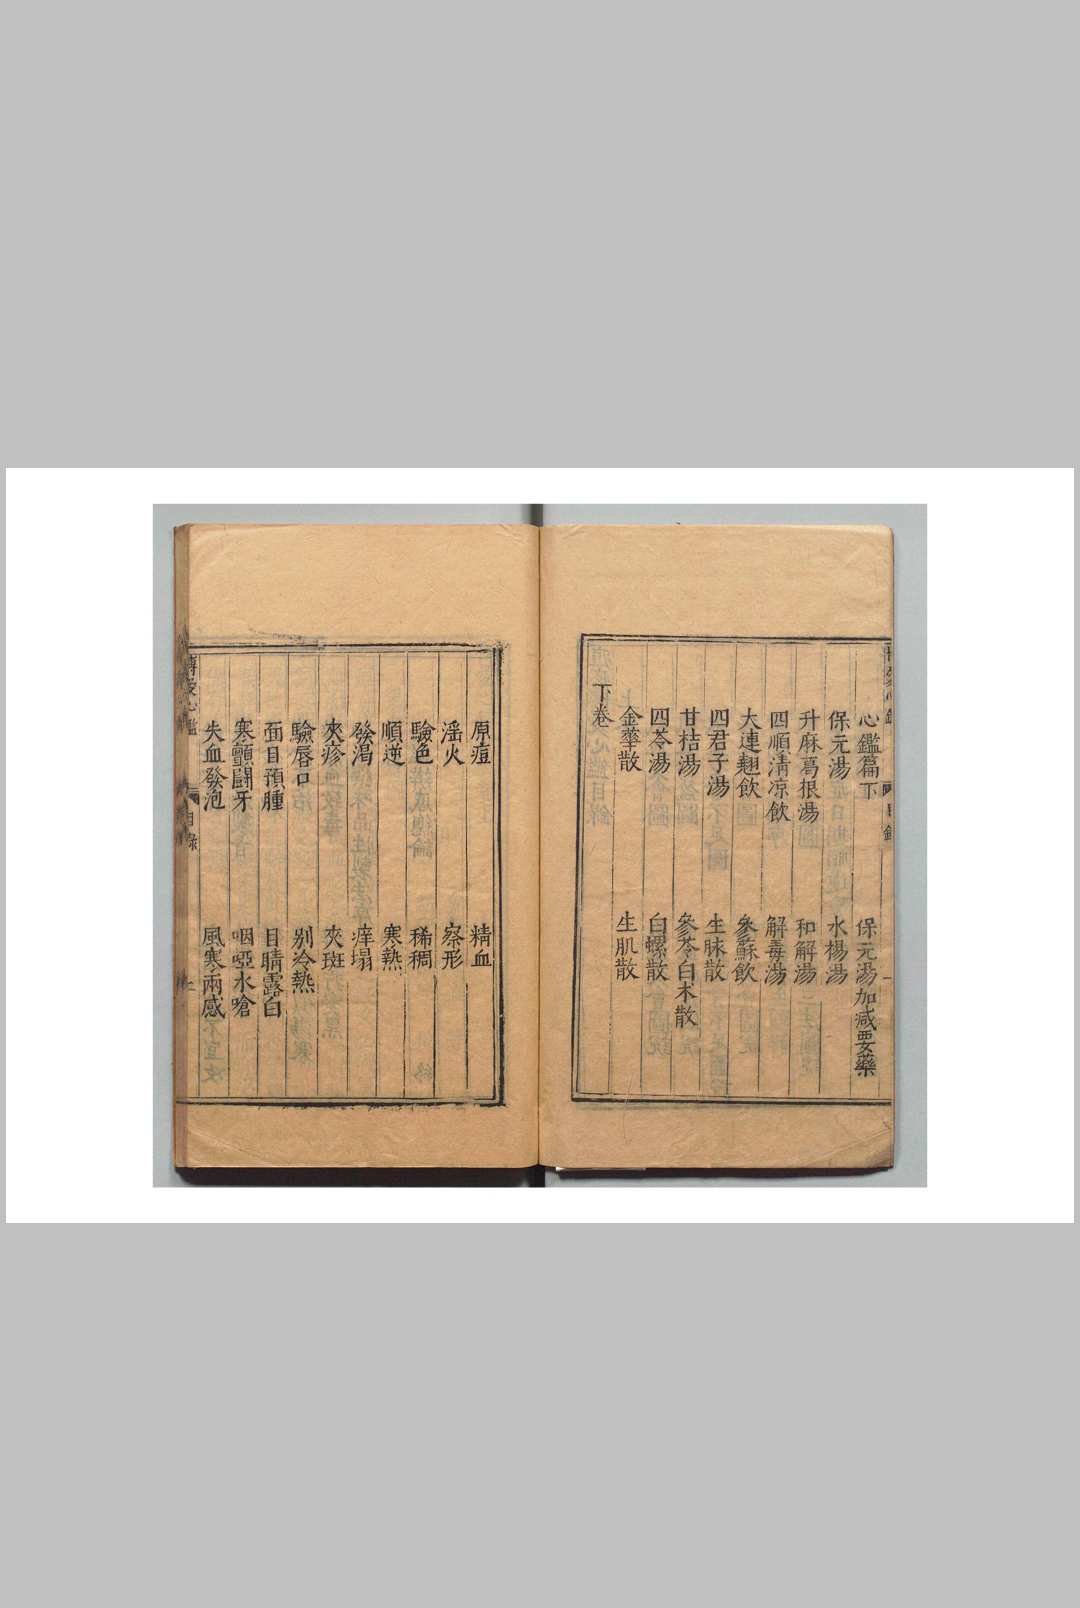 心鑑篇下
保元湯加減要藥
保元湯 水楊湯
升麻葛根湯 和解湯
四順清凉飲 解毒湯
大連翹飲 參蘇飲
四君子湯 生脉散
甘桔湯 參苓白术散
四苓湯 白螺散
金華散 生肌散
下卷
原痘 精血
淫火 察形
驗色 稀稠
順逆 寒熱
發渴 痒塌
夾疹 夾斑
驗唇口 别冷熱
面目預腫 目睛露白
寒顫鬪牙 咽啞水嗆
失血發泡 風寒兩感
心鑑 目錄